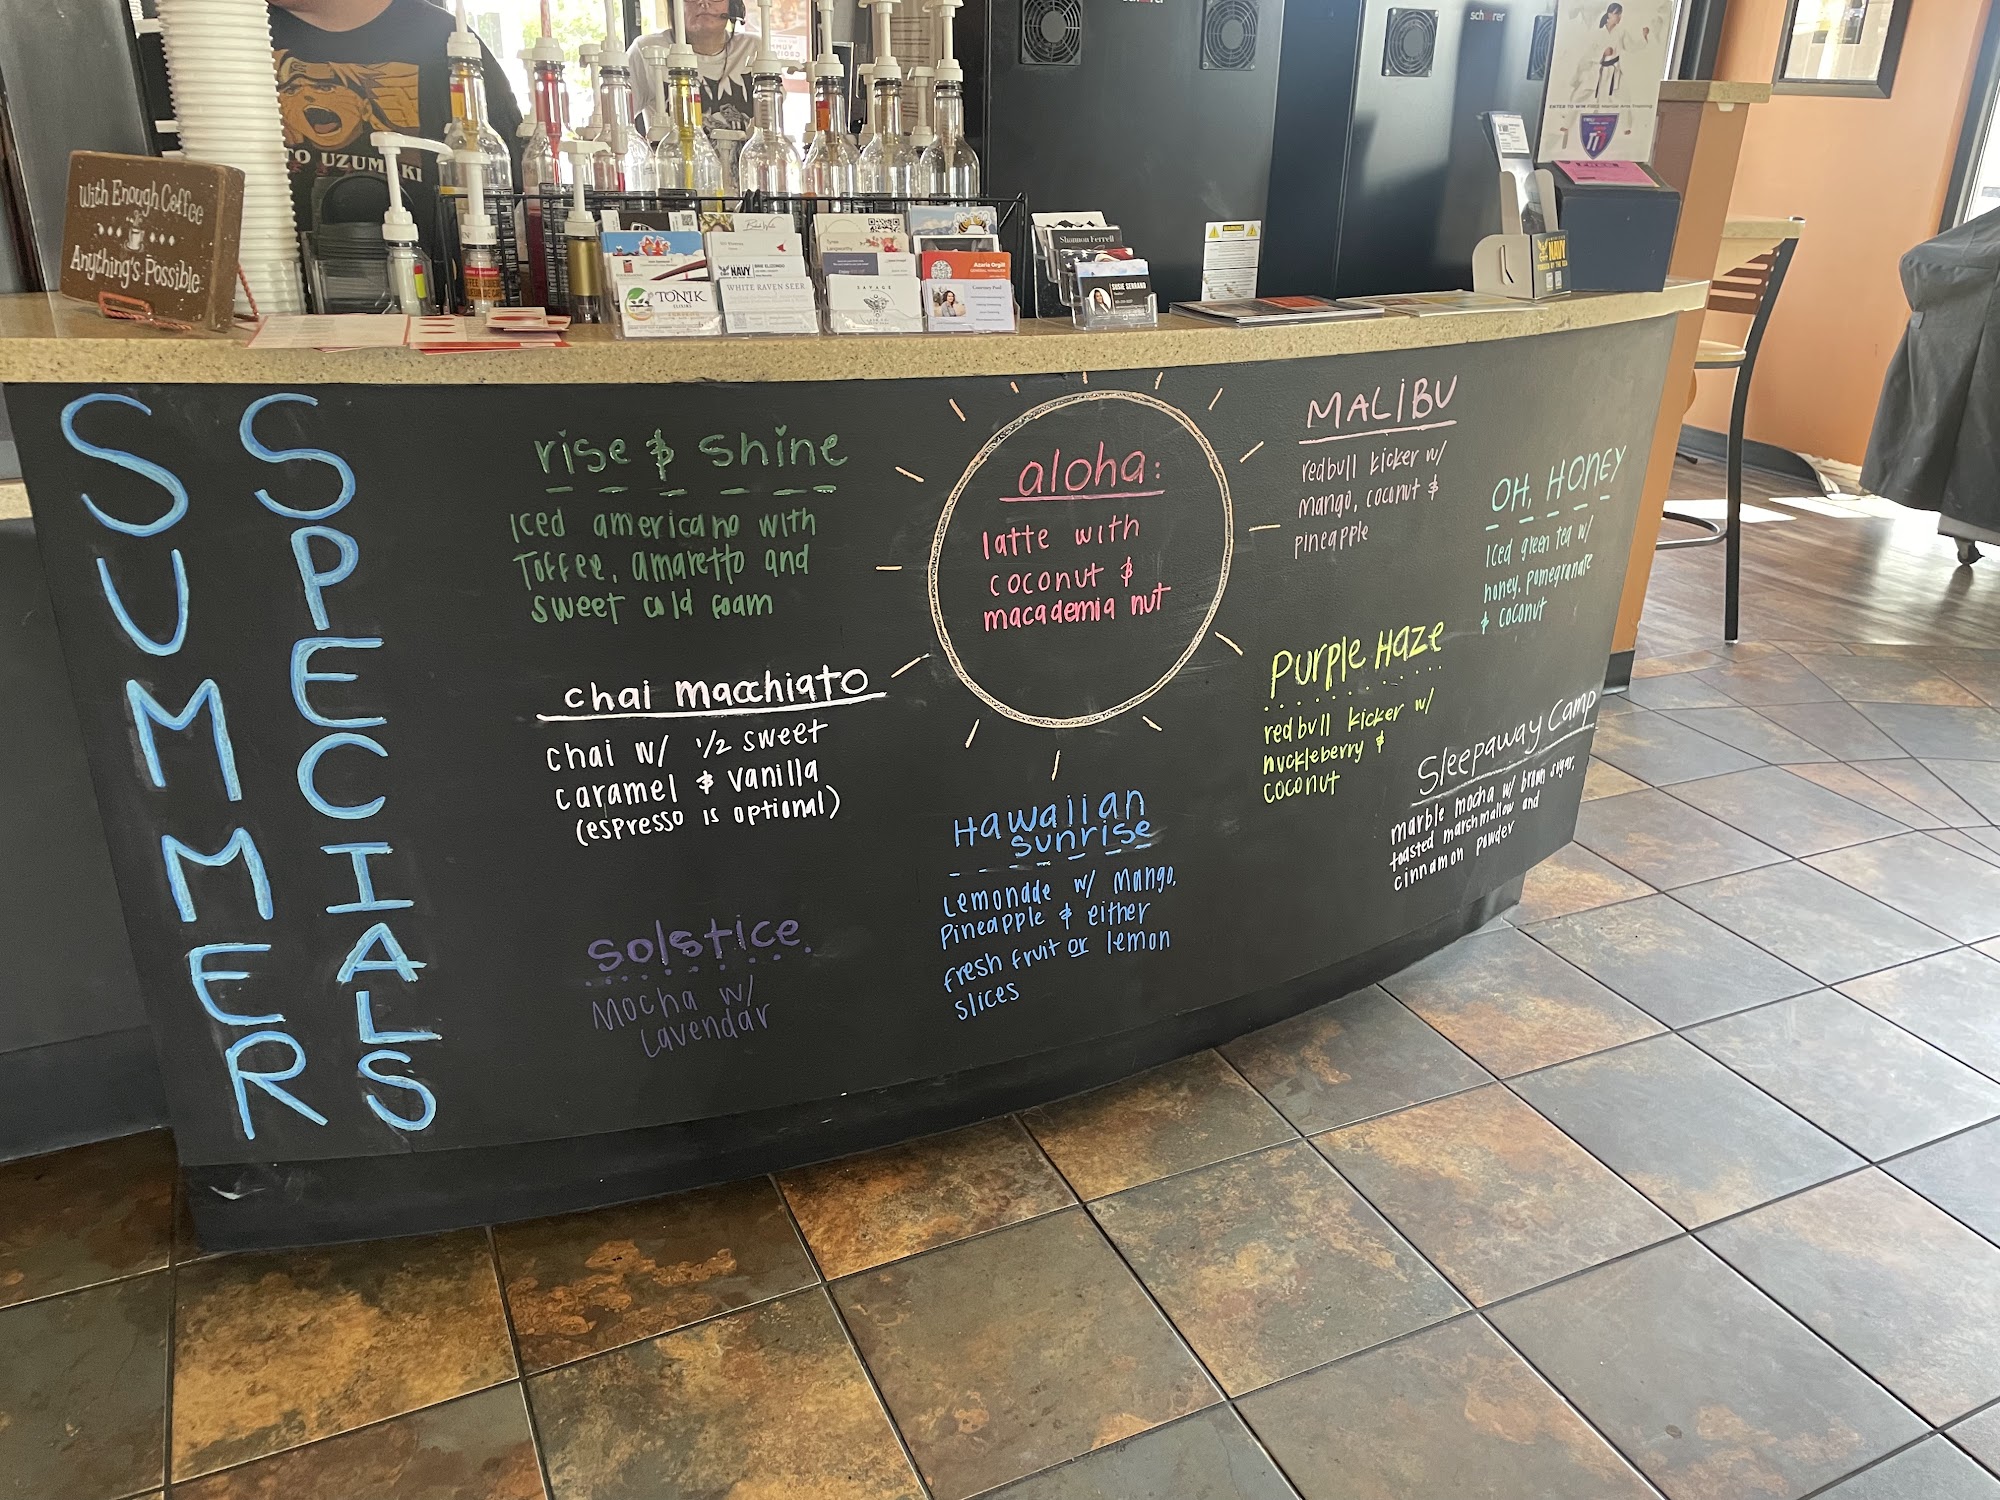 With Enough Coffee
Anything's Possible
TO UZUMAKI
schaerer
SUMMER
SPECIALS
rise & shine
Iced americano with
Toffee, amaretto and
sweet cold foam
chai macchiato
chai w/ 1/2 sweet
caramel & vanilla
(espresso is optional)
Solstice
Mocha w/
Lavendar
aloha:
latte with
coconut &
macadamia nut
Hawaiian
sunrise
Lemonade w/ Mango,
Pineapple & either
fresh fruit or lemon
slices
MALIBU
redbull kicker w/
mango, coconut &
pineapple
OH, HONEY
Iced green tea w/
honey, pomegranate
& coconut
Purple Haze
redbull kicker w/
huckleberry &
coconut
Sleepaway Camp
marble mocha w/ brown sugar,
toasted marshmallow and
cinnamon powder
TONIK
NAVY
WHITE RAVEN SEER
SAVAGE
Azaria Orgill
Courtney Paul
Shannon Ferrell
SUSIE SERRANO
NAVY
FREE